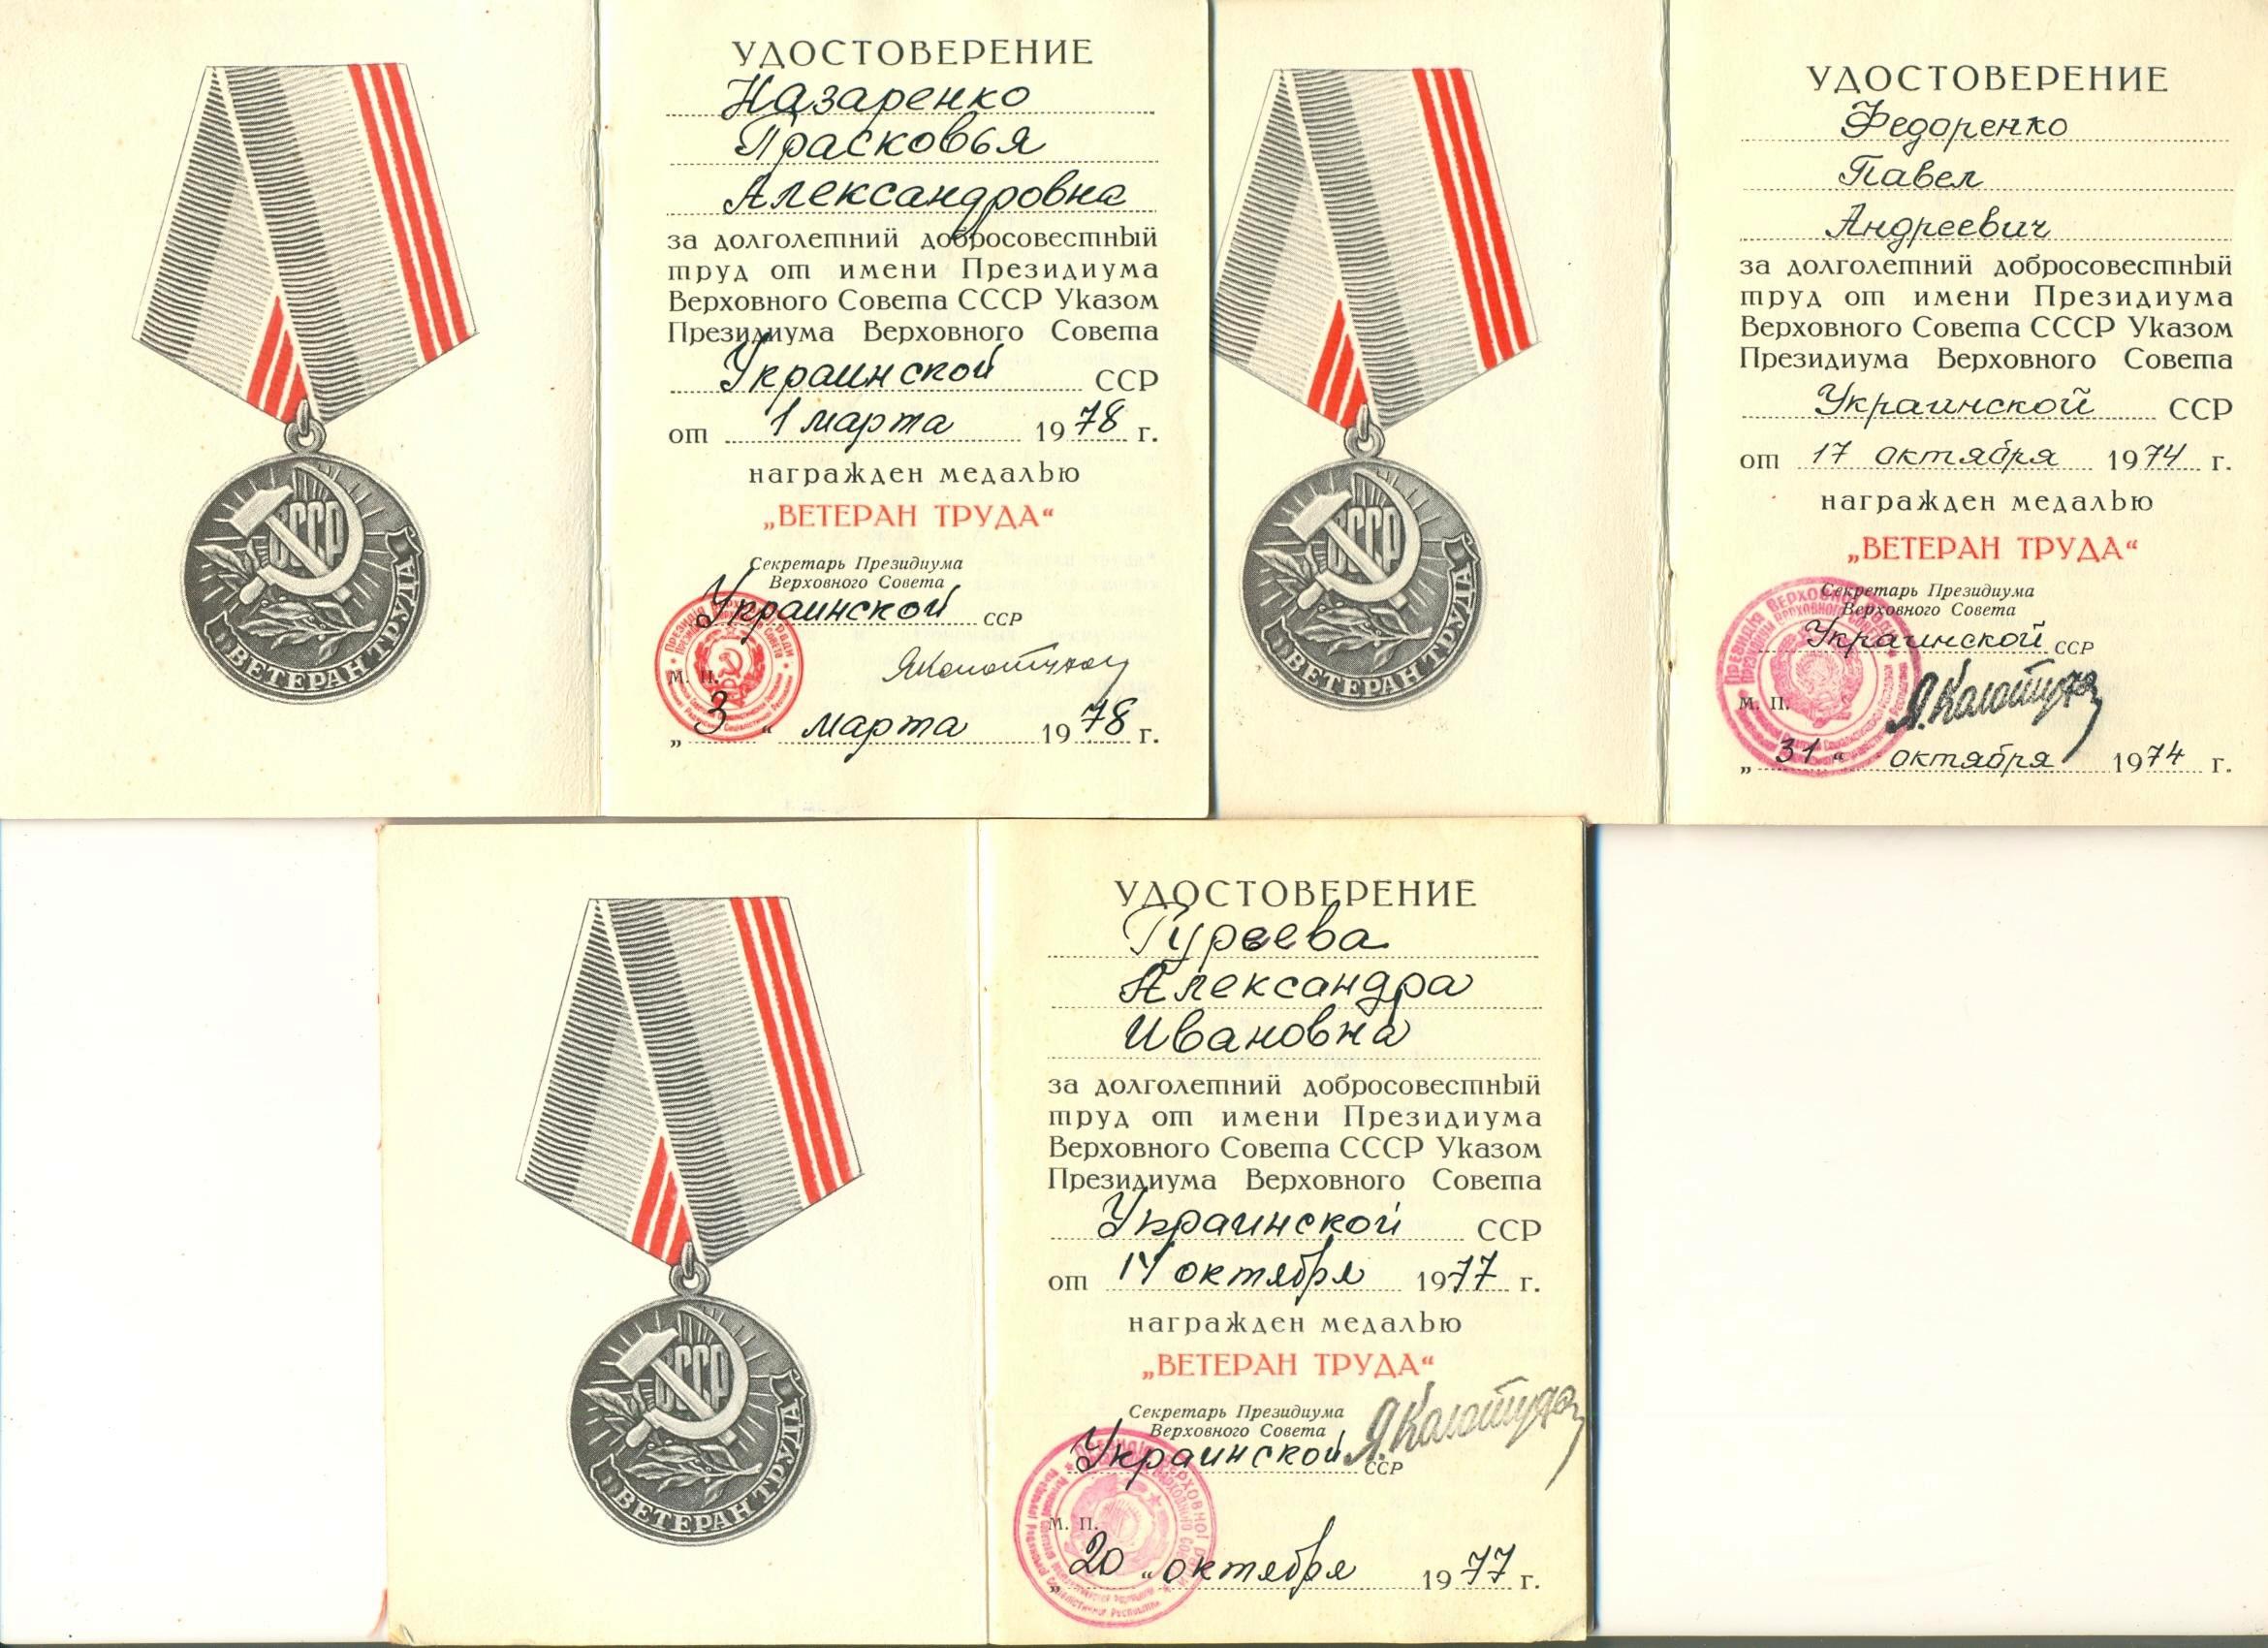 УДОСТОВЕРЕНИЕ
Назаренко
Прасковья
Александровна
за долголетний добросовестный
труд от имени Президиума
Верховного Совета СССР Указом
Президиума Верховного Совета
Украинской ССР
от 1 марта 1978 г.
награжден медалью
„ВЕТЕРАН ТРУДА“
Секретарь Президиума
Верховного Совета
Украинской ССР
М. П.
„3“ марта 1978 г.
СССР
ВЕТЕРАН ТРУДА
УДОСТОВЕРЕНИЕ
Федоренко
Павел
Андреевич
за долголетний добросовестный
труд от имени Президиума
Верховного Совета СССР Указом
Президиума Верховного Совета
Украинской ССР
от 17 октября 1974 г.
награжден медалью
„ВЕТЕРАН ТРУДА“
Секретарь Президиума
Верховного Совета
Украинской ССР
М. П.
„31“ октября 1974 г.
СССР
ВЕТЕРАН ТРУДА
УДОСТОВЕРЕНИЕ
Гуреева
Александра
Ивановна
за долголетний добросовестный
труд от имени Президиума
Верховного Совета СССР Указом
Президиума Верховного Совета
Украинской ССР
от 14 октября 1977 г.
награжден медалью
„ВЕТЕРАН ТРУДА“
Секретарь Президиума
Верховного Совета
Украинской ССР
М. П.
„20“ октября 1977 г.
СССР
ВЕТЕРАН ТРУДА